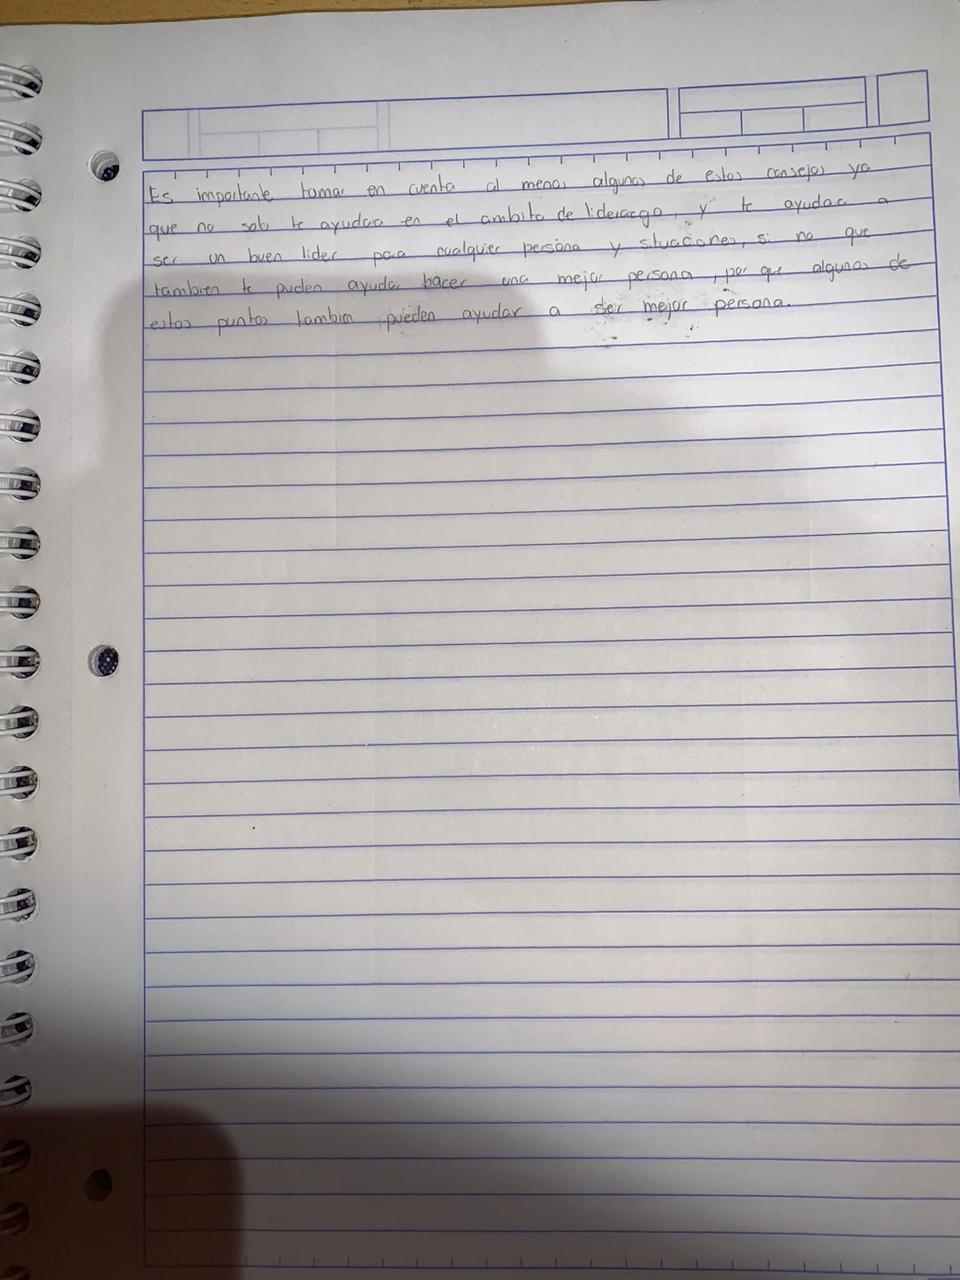 Es importante tomar en cuenta al menos algunos de estos consejos ya
que no solo te ayudara en el ambito de liderazgo, y te ayudara a
ser un buen lider para cualquier persona y situaciones, si no que
tambien te puden ayudar hacer una mejor persona, por que algunos de
estos puntos tambien pueden ayudar a ser mejor persona.